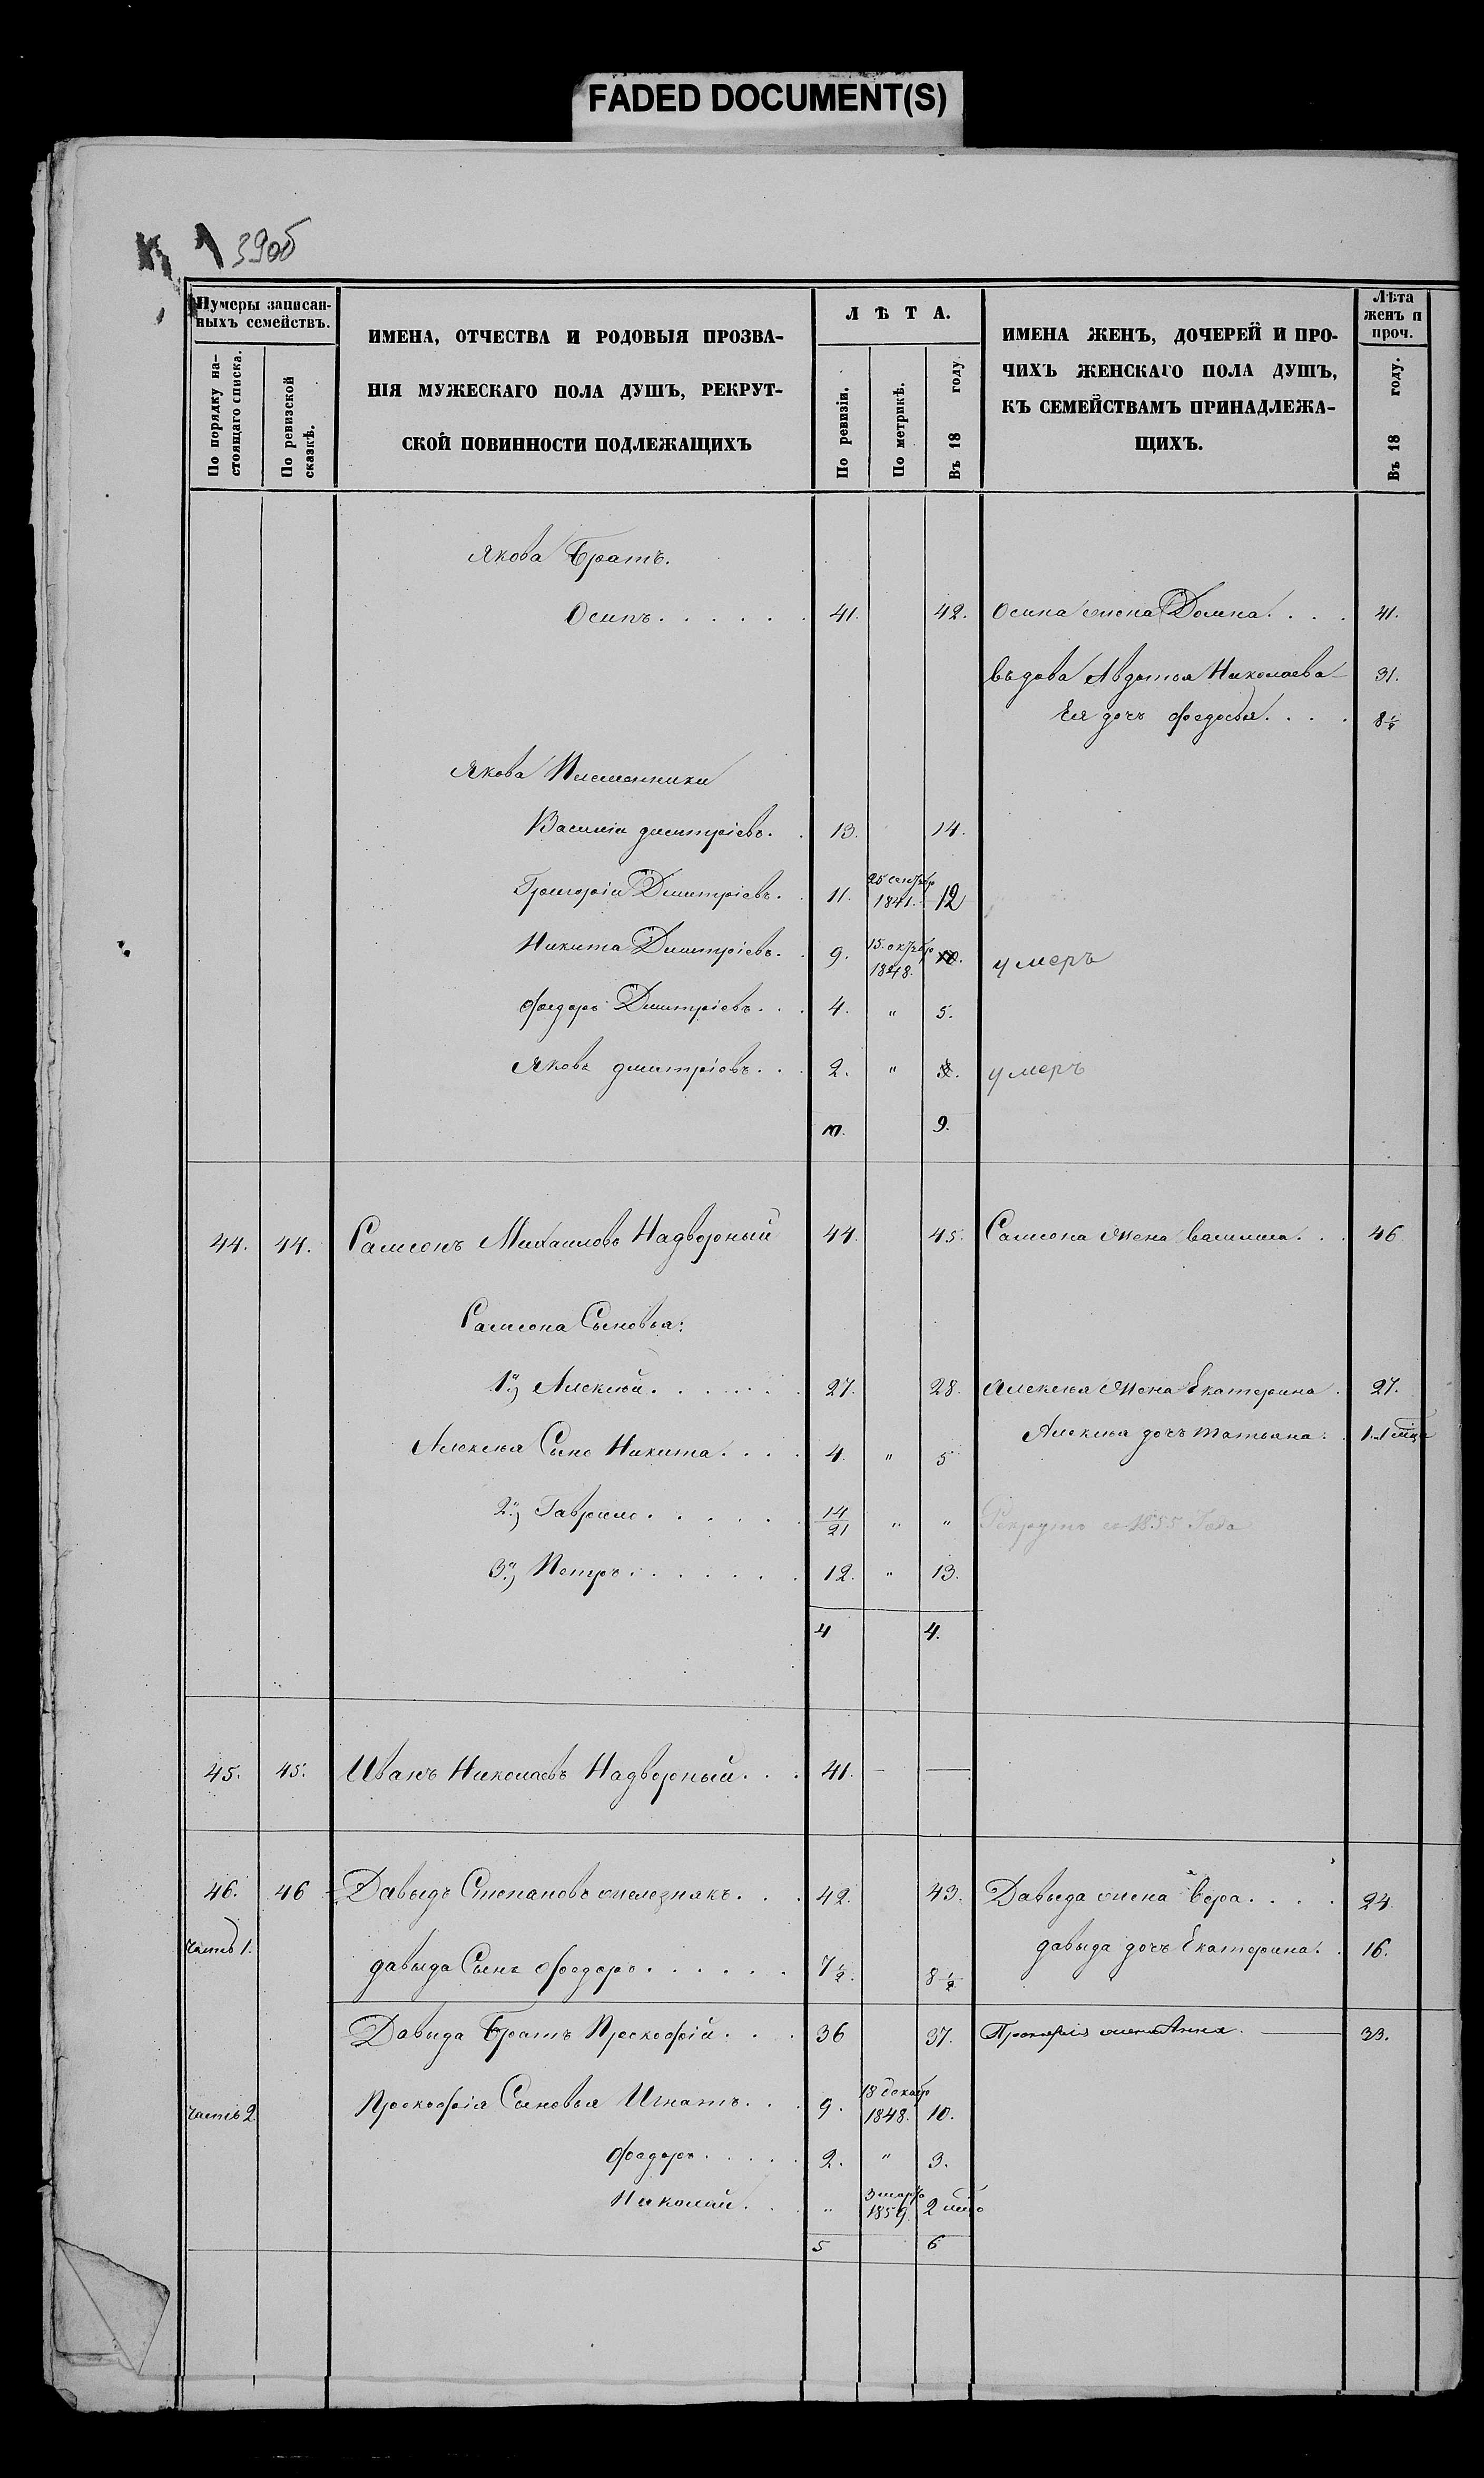 FADED DOCUMENT(S)
39об
Нумеры записан-
ныхъ семействъ.
По порядку на-
стоящаго списка.
По ревизской
сказкѣ.
ИМЕНА, ОТЧЕСТВА И РОДОВЫЯ ПРОЗВА-
НІЯ МУЖЕСКАГО ПОЛА ДУШЪ, РЕКРУТ-
СКОЙ ПОВИННОСТИ ПОДЛЕЖАЩИХЪ
ЛѢТА.
По ревизіи.
По метрикѣ.
Въ 18 году.
ИМЕНА ЖЕНЪ, ДОЧЕРЕЙ И ПРО-
ЧИХЪ ЖЕНСКАГО ПОЛА ДУШЪ,
КЪ СЕМЕЙСТВАМЪ ПРИНАДЛЕЖА-
ЩИХЪ.
Лѣта
женъ и
проч.
Въ 18 году.
Якова Братъ.
Осипъ. . . . . . 41. 42. Осипа жена Домна. . . . 41.
въдова Авдотья Николаева 31.
Ея дочь Федосья. . . . 8 1/2
Якова Племенники
Василіи дмитріевъ. . 13. 14.
Григоріи Дмитріевъ. . 11. 25 сентябр 1841. 12
Никита Дмитріевъ. . 9. 15. октябр 1848. 10. умеръ
Федоръ Дмитріевъ. . . 4. " 5.
Яковъ дмитріевъ. . . 2. " 3. умеръ
9.
44. 44. Самсонъ Михаиловъ Надворный 44. 45. Самсона Жена василиса. . . 46
Самсона Сыновья:
1й) Алексѣй. . . . . . . 27. 28. Алексѣя Жена Екатерина . 27.
Алексѣя дочь татьяна. .
Алексѣя Сынъ Никита. . . . 4. " 5
2й) Гаврило. . . . . . 14/21 " " Рекрутъ съ 1855 Года
3й) Петръ. . . . . . . 12. " 13.
4 4.
45. 45. Иванъ Николаевъ Надворный. . . 41. — —
46. 46 Давыдъ Степановъ железнякъ. . . 42. 43. Давыда жена Вера. . . . 24.
часть 1.
давыда дочь Екатерина. . 16.
давыда Сынъ Федоръ. . . . . . 7 1/2. 8 1/2
Давыда Братъ Прокофій. . . 36 37. Прокофія жена Анна. — 33.
часть 2.
Прокофія Сыновья Игнатъ. . . 9. 18 декабр 1848. 10.
Федоръ. . . . . 2. " 3.
Николай. . . " 3 марта 1859.
5 6